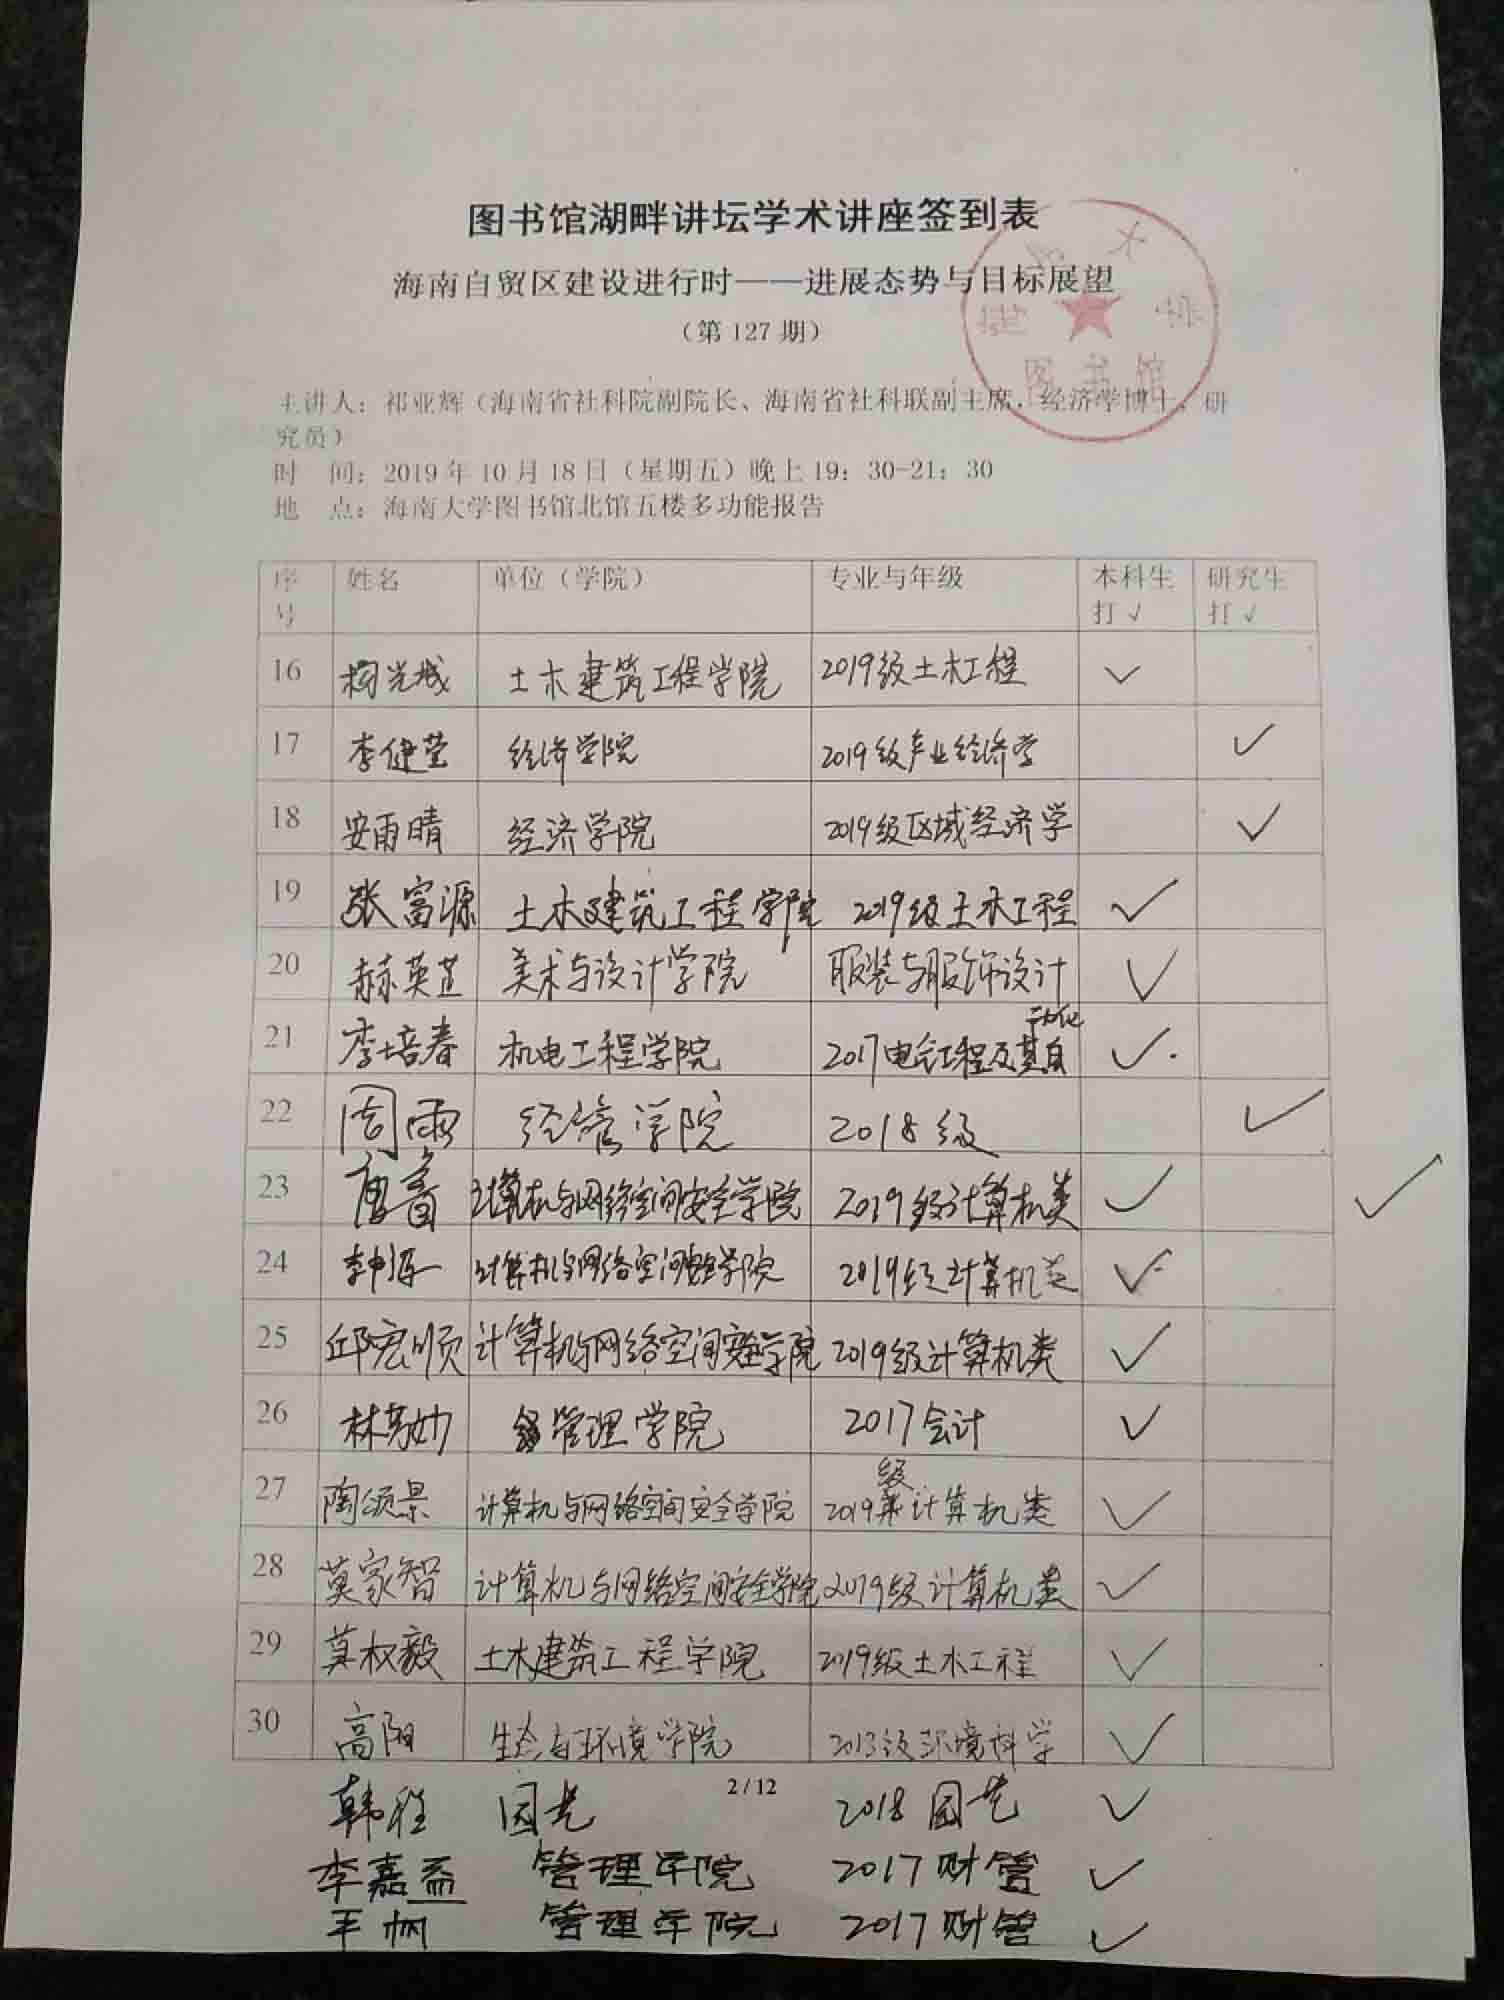 图书馆湖畔讲坛学术讲座签到表
海南自贸区建设进行时——进展态势与目标展望
（第 127 期）
图书馆
主讲人：祁亚辉（海南省社科院副院长、海南省社科联副主席，经济学博士，研
究员）
时 间：2019 年 10 月 18 日（星期五）晚上 19：30-21：30
地 点：海南大学图书馆北馆五楼多功能报告
序号 姓名 单位（学院） 专业与年级 本科生打√ 研究生打√
16 土木建筑工程学院 2019级土木工程 ✓
17 李健莹 经济学院 2019级产业经济学 ✓
18 安雨晴 经济学院 2019级区域经济学 ✓
19 张富源 土木建筑工程学院 2019级土木工程 ✓
20 赫英芷 美术与设计学院 服装与服饰设计 ✓
21 李培春 机电工程学院 2017电气工程及其自动化 ✓
22 周雨 经管学院 2018级 ✓
23 计算机与网络空间安全学院 2019级计算机类 ✓ ✓
24 计算机与网络空间安全学院 2019级计算机类 ✓
25 邱宏顺 计算机与网络空间安全学院 2019级计算机类 ✓
26 林芳妙 管理学院 2017会计 ✓
27 陶颂景 计算机与网络空间安全学院 2019级计算机类 ✓
28 莫家智 计算机与网络空间安全学院 2019级计算机类 ✓
29 莫权毅 土木建筑工程学院 2019级土木工程 ✓
30 高阳 生态与环境学院 环境科学 ✓
2 / 12
韩 园艺 2018 园艺 ✓
李嘉 管理学院 2017 财管 ✓
管理学院 2017 财管 ✓